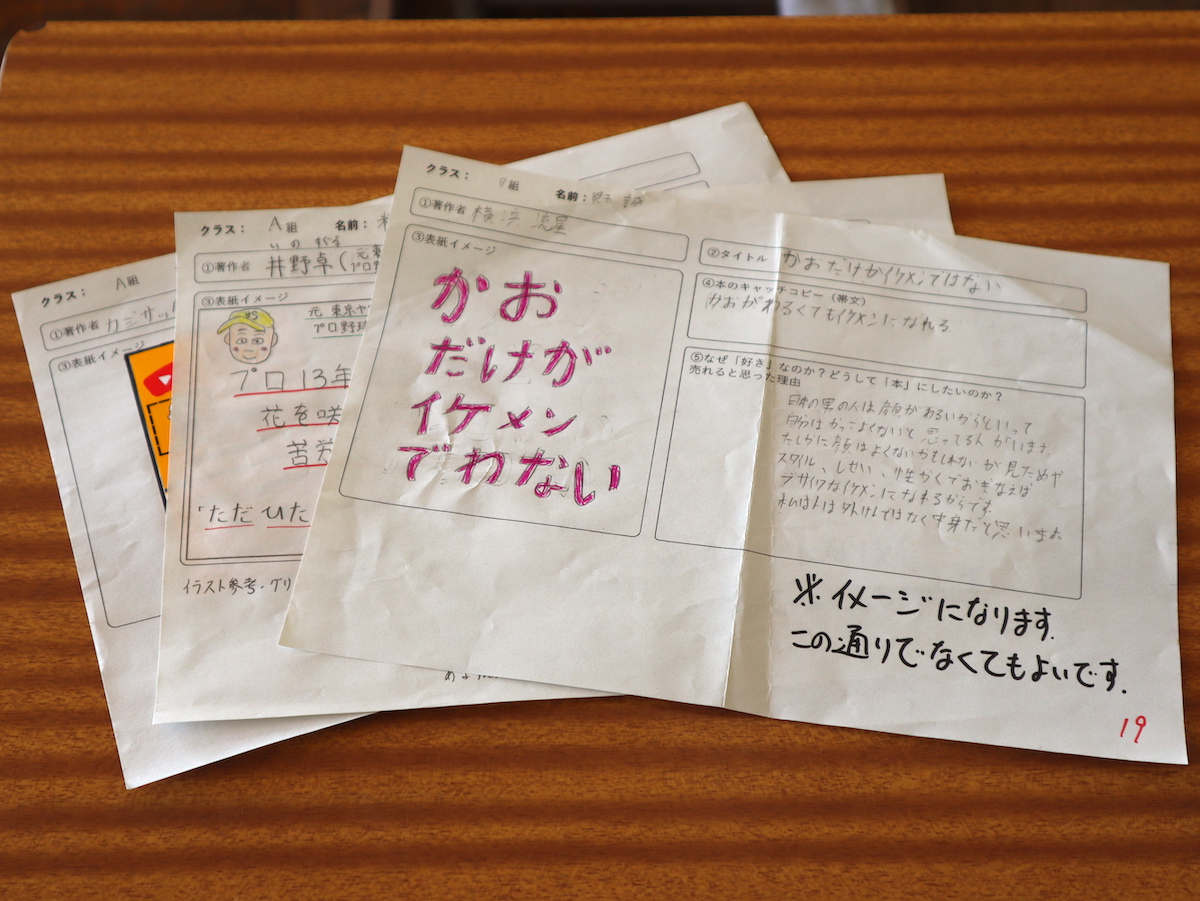 クラス： A組
①著作者 カジサック
③表紙イメージ
クラス： A組 名前：
いの すぐる
①著作者 井野卓(元東
プロ野
③表紙イメージ
YS
元 東京ヤ
プロ野球
プロ13年
花を咲
苦労
「ただ ひた
イラスト参考・グリ
クラス： 組 名前：
①著作者 横浜 流星
③表紙イメージ
かお
だけが
イケメン
でわない
②タイトル かおだけがイケメンではない
④本のキャッチコピー（帯文）
かおがわるくてもイケメンになれる
⑤なぜ「好き」なのか？どうして「本」にしたいのか？
売れると思った理由
日本の男の人は顔がわるいからといって
自分はかっこよくないと思ってる人がいます
たしかに顔はよくないかもしれないが見ためや
スタイル、しせい、性かくでおぎなえば
ブサイクなイケメンになれるからです。
私は人は外けんではなく中身だと思います
※イメージになります.
この通りでなくてもよいです.
19